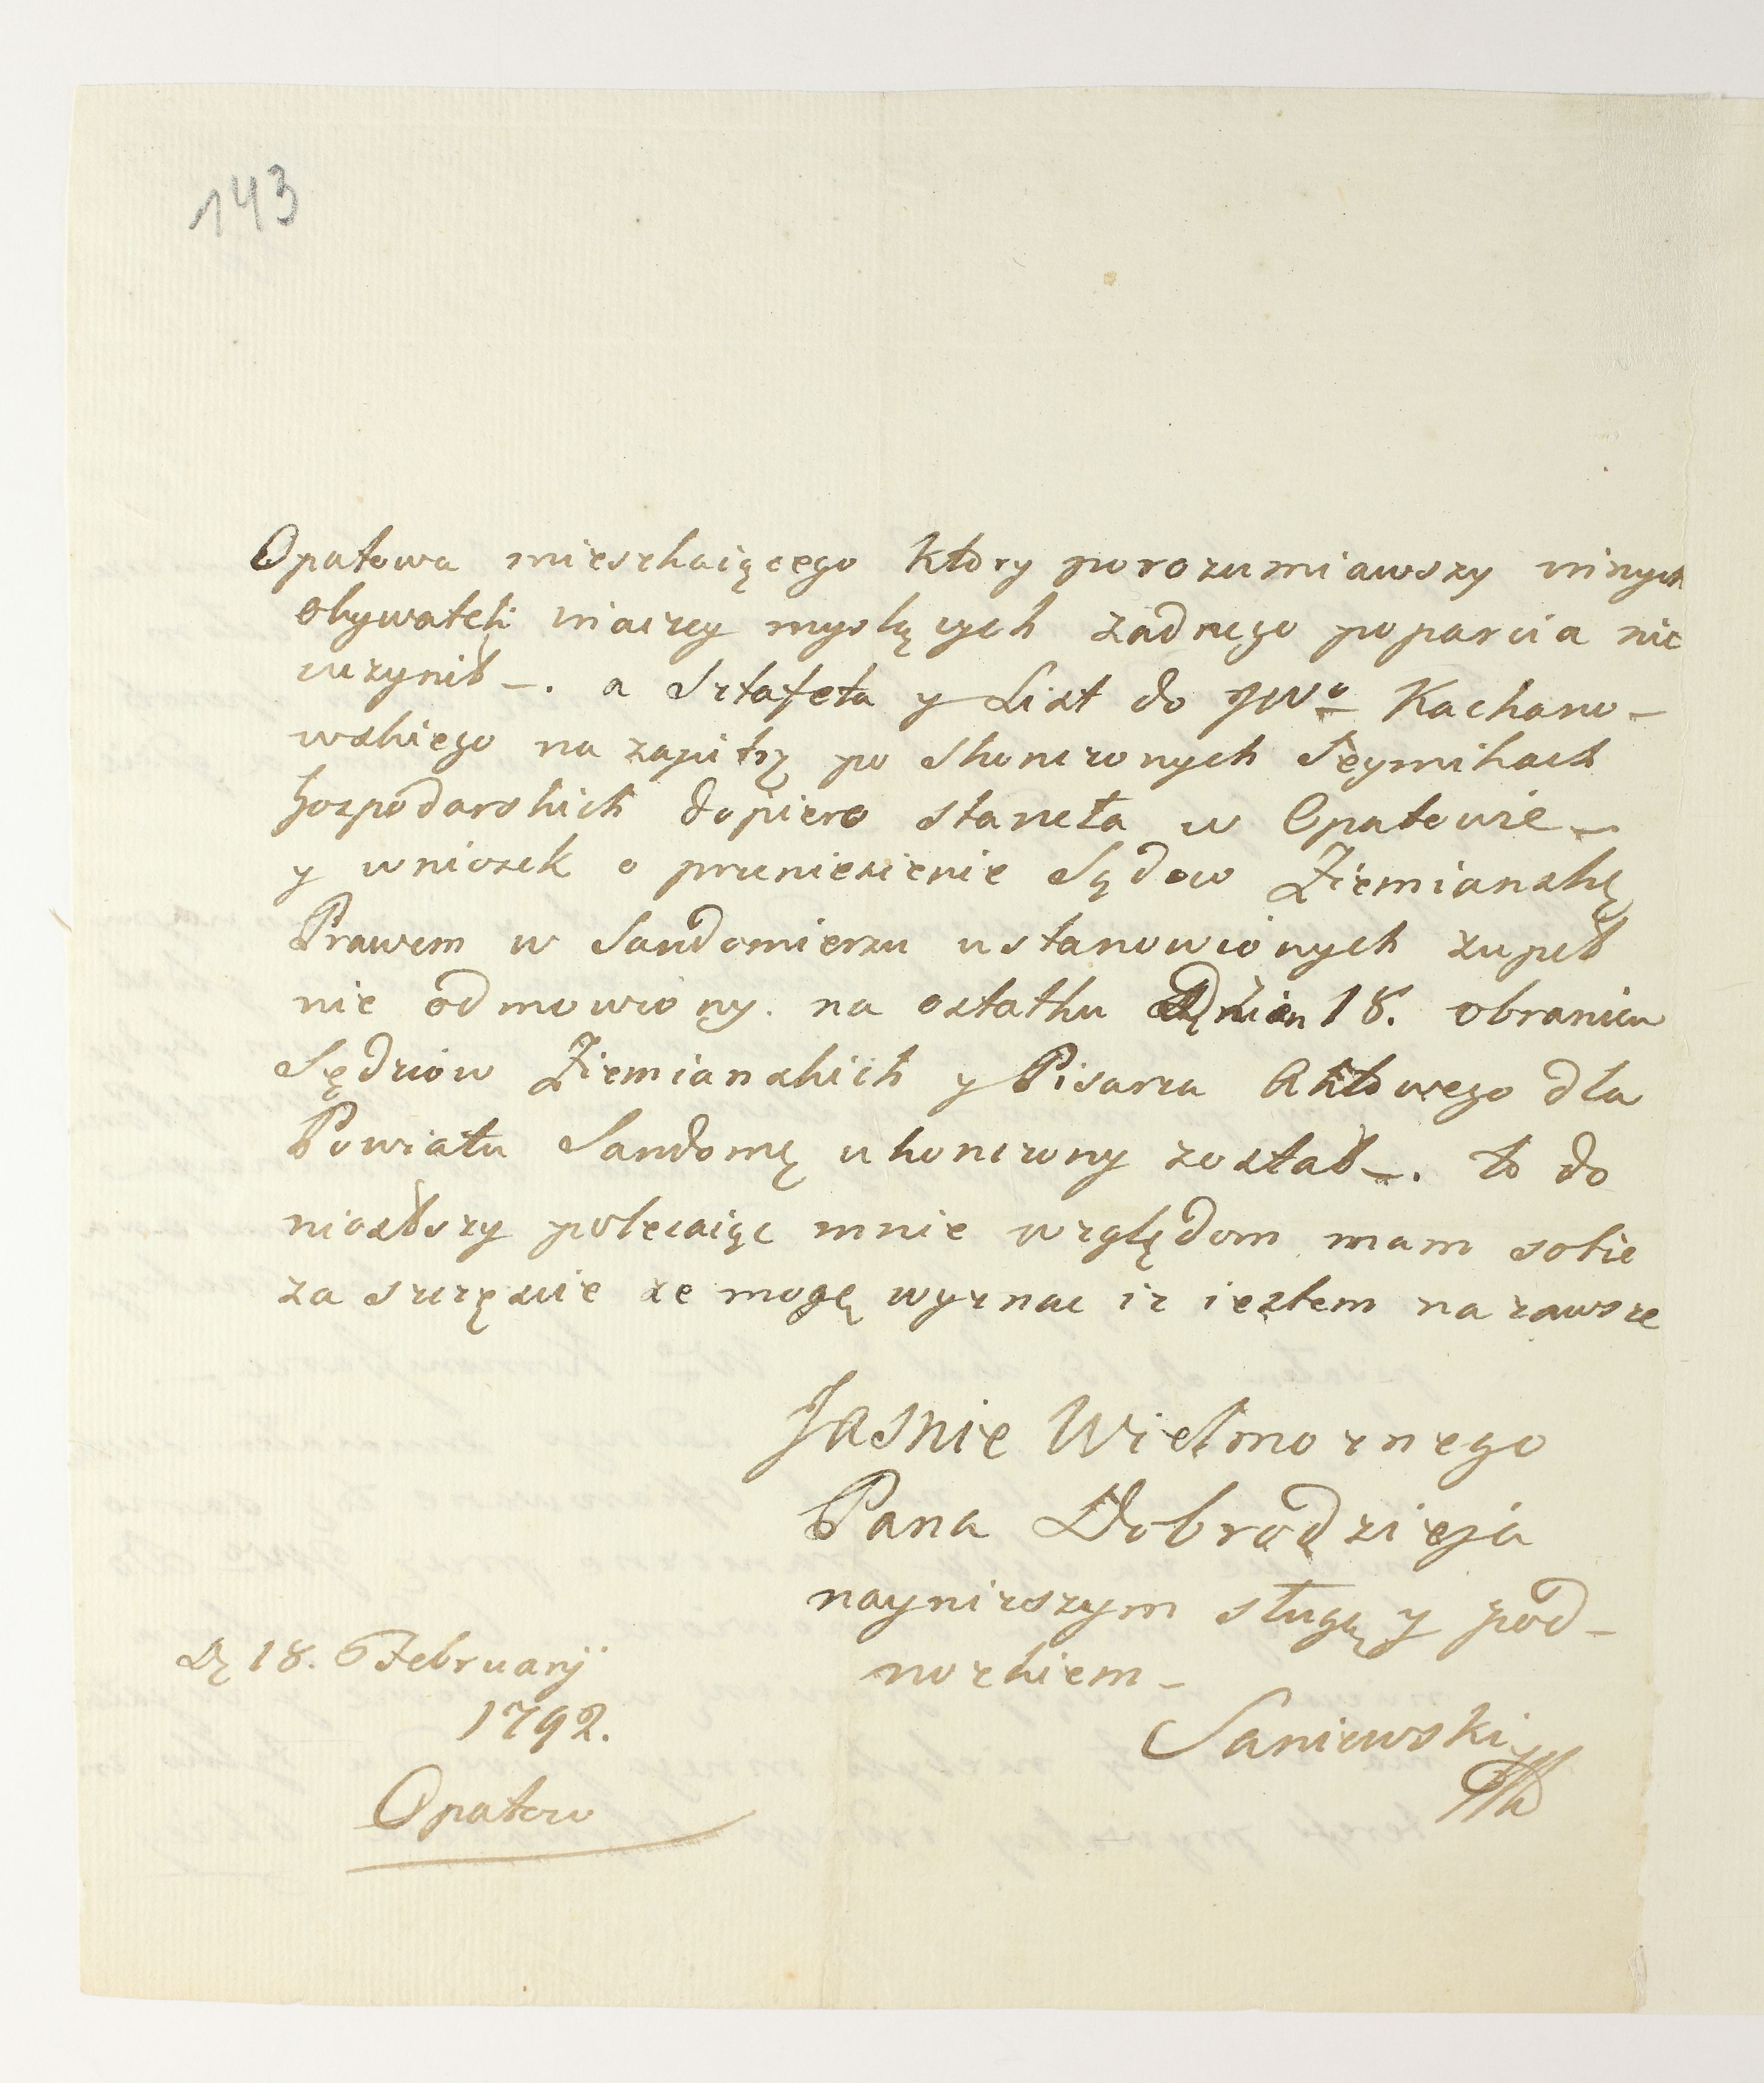 143
Opatowa mieszkaiącego który porozumiawszy innych
obywateli inaczey myslących zadnego poparcia nie
uczynił –. a Sztafeta y List do JWo Kachano –
wskiego na zapitrz po skonczonych Seymikach
hospodarskich dopiero staneła w Opatowie –
y wniosek o przeniesienie Sądow Ziemianskḩ
Prawem w Sandomierzu ustanowionych zupeł
nie odmowiony. na ostatku Dnia 18. obraniem
Sędziow Ziemianskich y Pisarza Aktowego dla
Powiatu Sandomę ukonczony został –. to do
niosłszy polecaiąc mnie względom mam sobie
za szczęście ze mogę wyznac iz iestem na zawsze
Jasnie Wielmoznego
Pana Dobrodzieja
naynizszym sługą y pod –
nozkiem –
Saniewski
Dę 18. February
1792.
Opatow